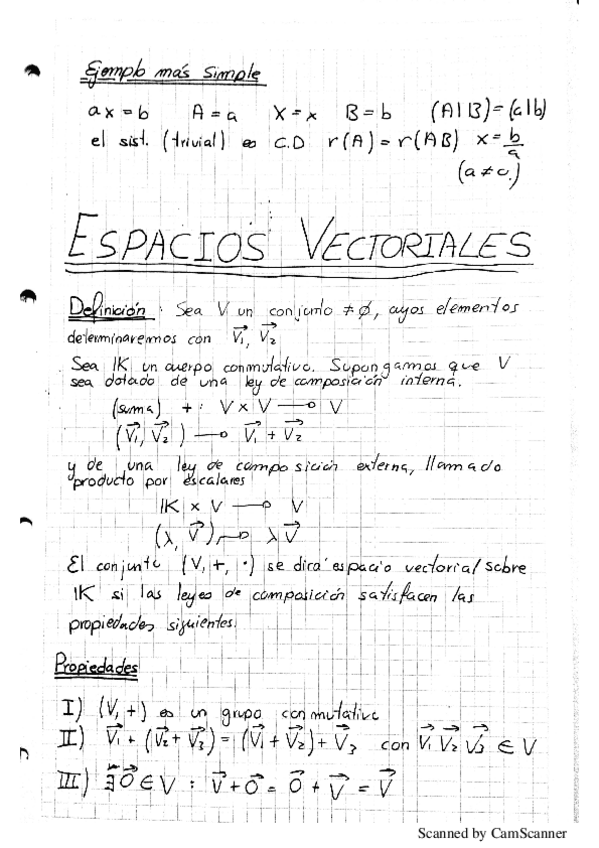 Ejemplo más simple
ax = b A = a X = x B = b (A|B) = (a|b)
el sist. (trivial) es C.D r(A) = r(AB) x = b/a
(a ≠ 0.)
ESPACIOS VECTORIALES
Definición: Sea V un conjunto ≠ ∅, cuyos elementos
determinaremos con V⃗₁, V⃗₂
Sea IK un cuerpo conmutativo. Supongamos que V
sea dotado de una ley de composición interna.
(suma) + : V × V → V
(V⃗₁, V⃗₂) → V⃗₁ + V⃗₂
y de una ley de composición externa, llamado
producto por escalares
IK × V → V
(λ, V⃗) → λV⃗
El conjunto (V, +, ·) se dirá espacio vectorial sobre
IK si las leyes de composición satisfacen las
propiedades siguientes:
Propiedades
I) (V, +) es un grupo conmutativo
II) V⃗₁ + (V⃗₂ + V⃗₃) = (V⃗₁ + V⃗₂) + V⃗₃ con V⃗₁ V⃗₂ V⃗₃ ∈ V
III) ∃ 0⃗ ∈ V : V⃗ + 0⃗ = 0⃗ + V⃗ = V⃗
Scanned by CamScanner